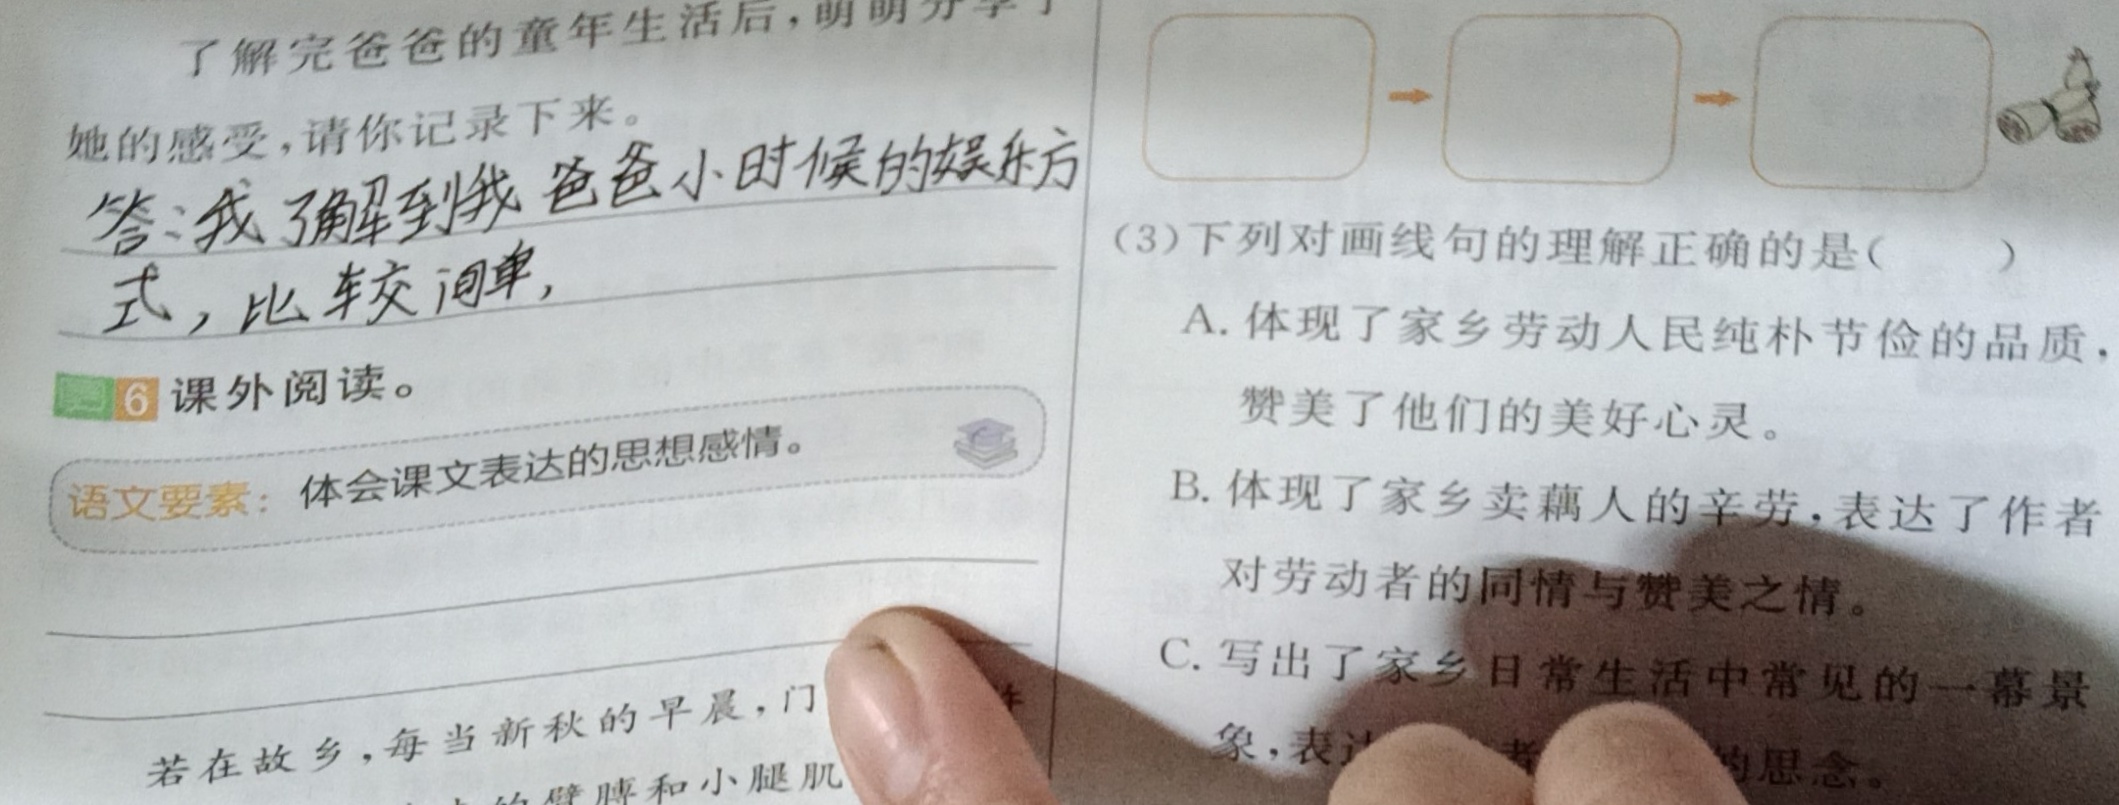 了解完爸爸的童年生活后,萌萌分享了
她的感受,请你记录下来。
答:我了解到我爸爸小时候的娱乐方
式,比较简单,
6 课外阅读。
语文要素: 体会课文表达的思想感情。
若在故乡,每当新秋的早晨,门
的臂膊和小腿肌
(3)下列对画线句的理解正确的是( )
A. 体现了家乡劳动人民纯朴节俭的品质,
赞美了他们的美好心灵。
B. 体现了家乡卖藕人的辛劳,表达了作者
对劳动者的同情与赞美之情。
C. 写出了家乡日常生活中常见的一幕景
象,表达 者 的思念。